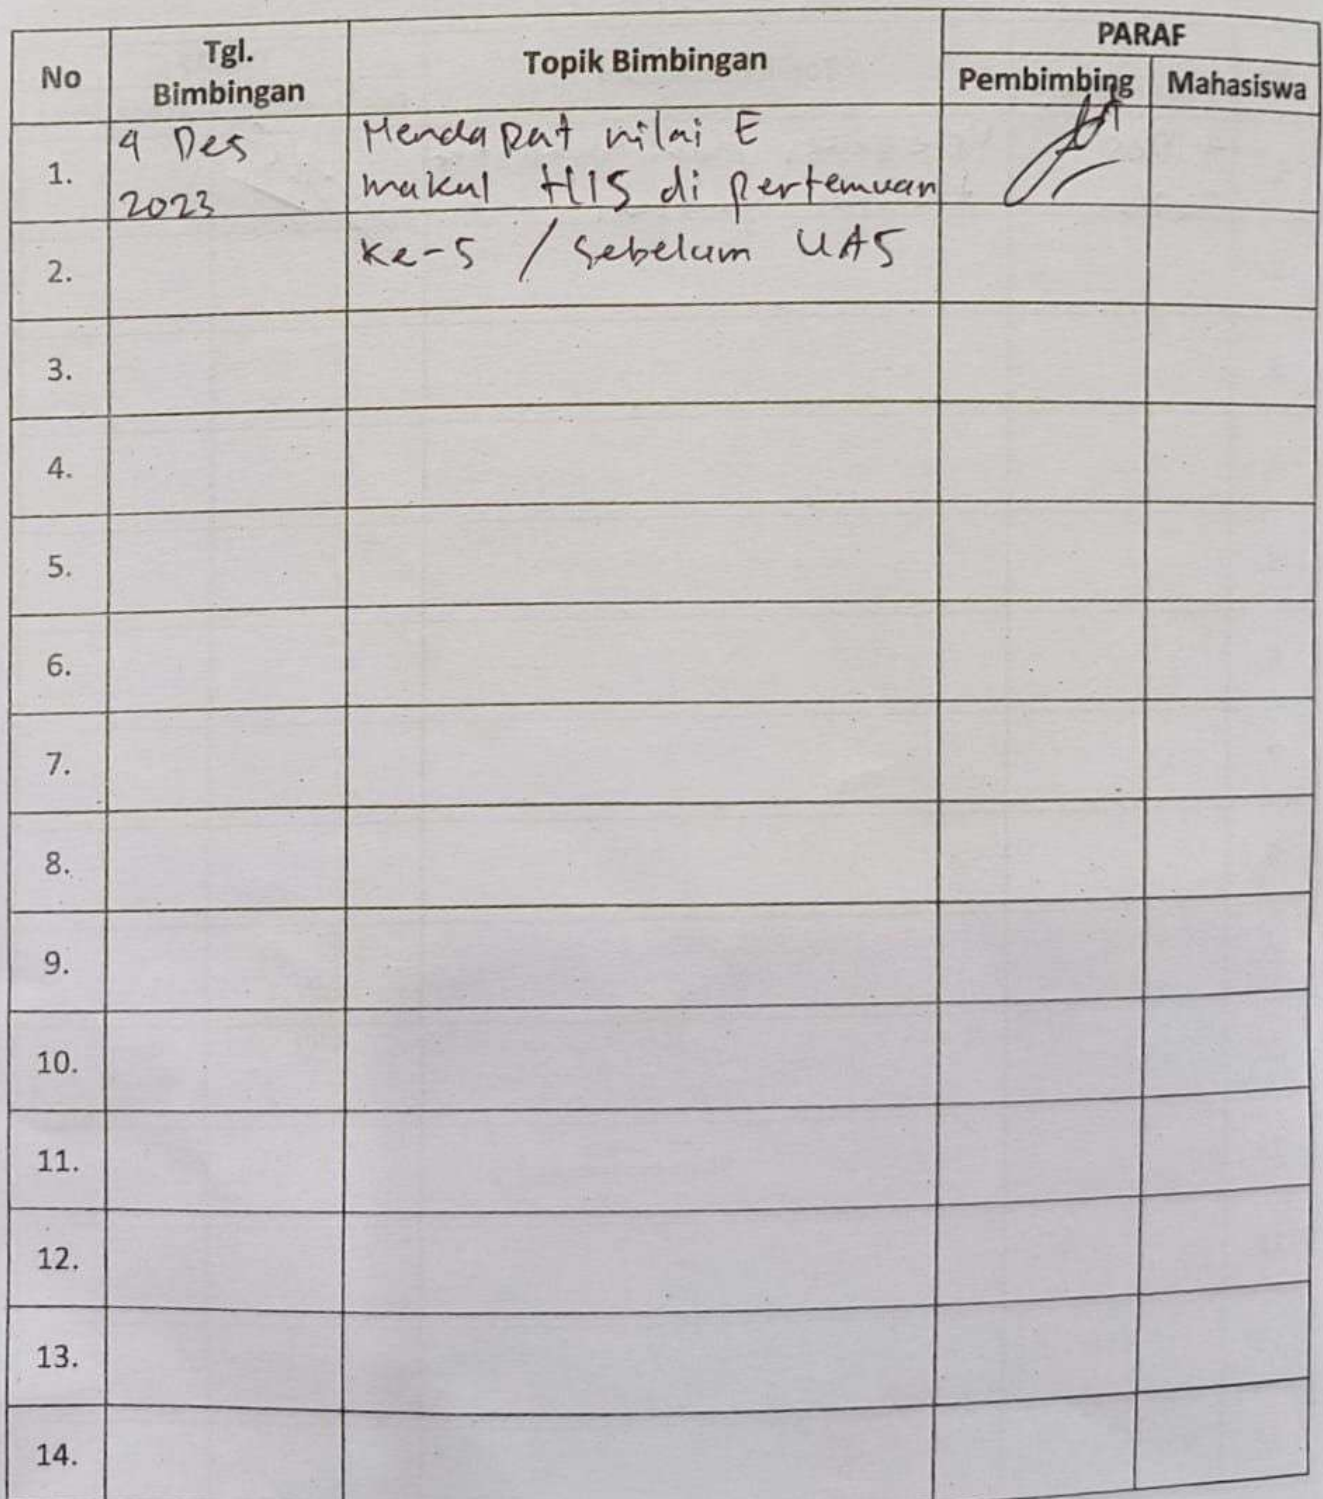 No
Tgl.
Bimbingan
Topik Bimbingan
PARAF
Pembimbing
Mahasiswa
1.
4 Des
2023
Mendapat nilai E
makul HIS di pertemuan
2.
Ke-5 / Sebelum UAS
3.
4.
5.
6.
7.
8.
9.
10.
11.
12.
13.
14.